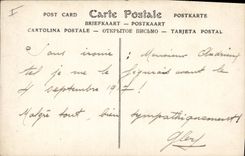 I
POST CARD Carte Postale POSTKARTE
BRIEFKAART — POSTKAART
CARTOLINA POSTALE — ОТКРЫТОЕ ПИСЬМО — TARJETA POSTAL
Sans ironie : Monsieur
tel je me le figurais avant le
4 septembre 19
Malgré tout, bien sympathiquement